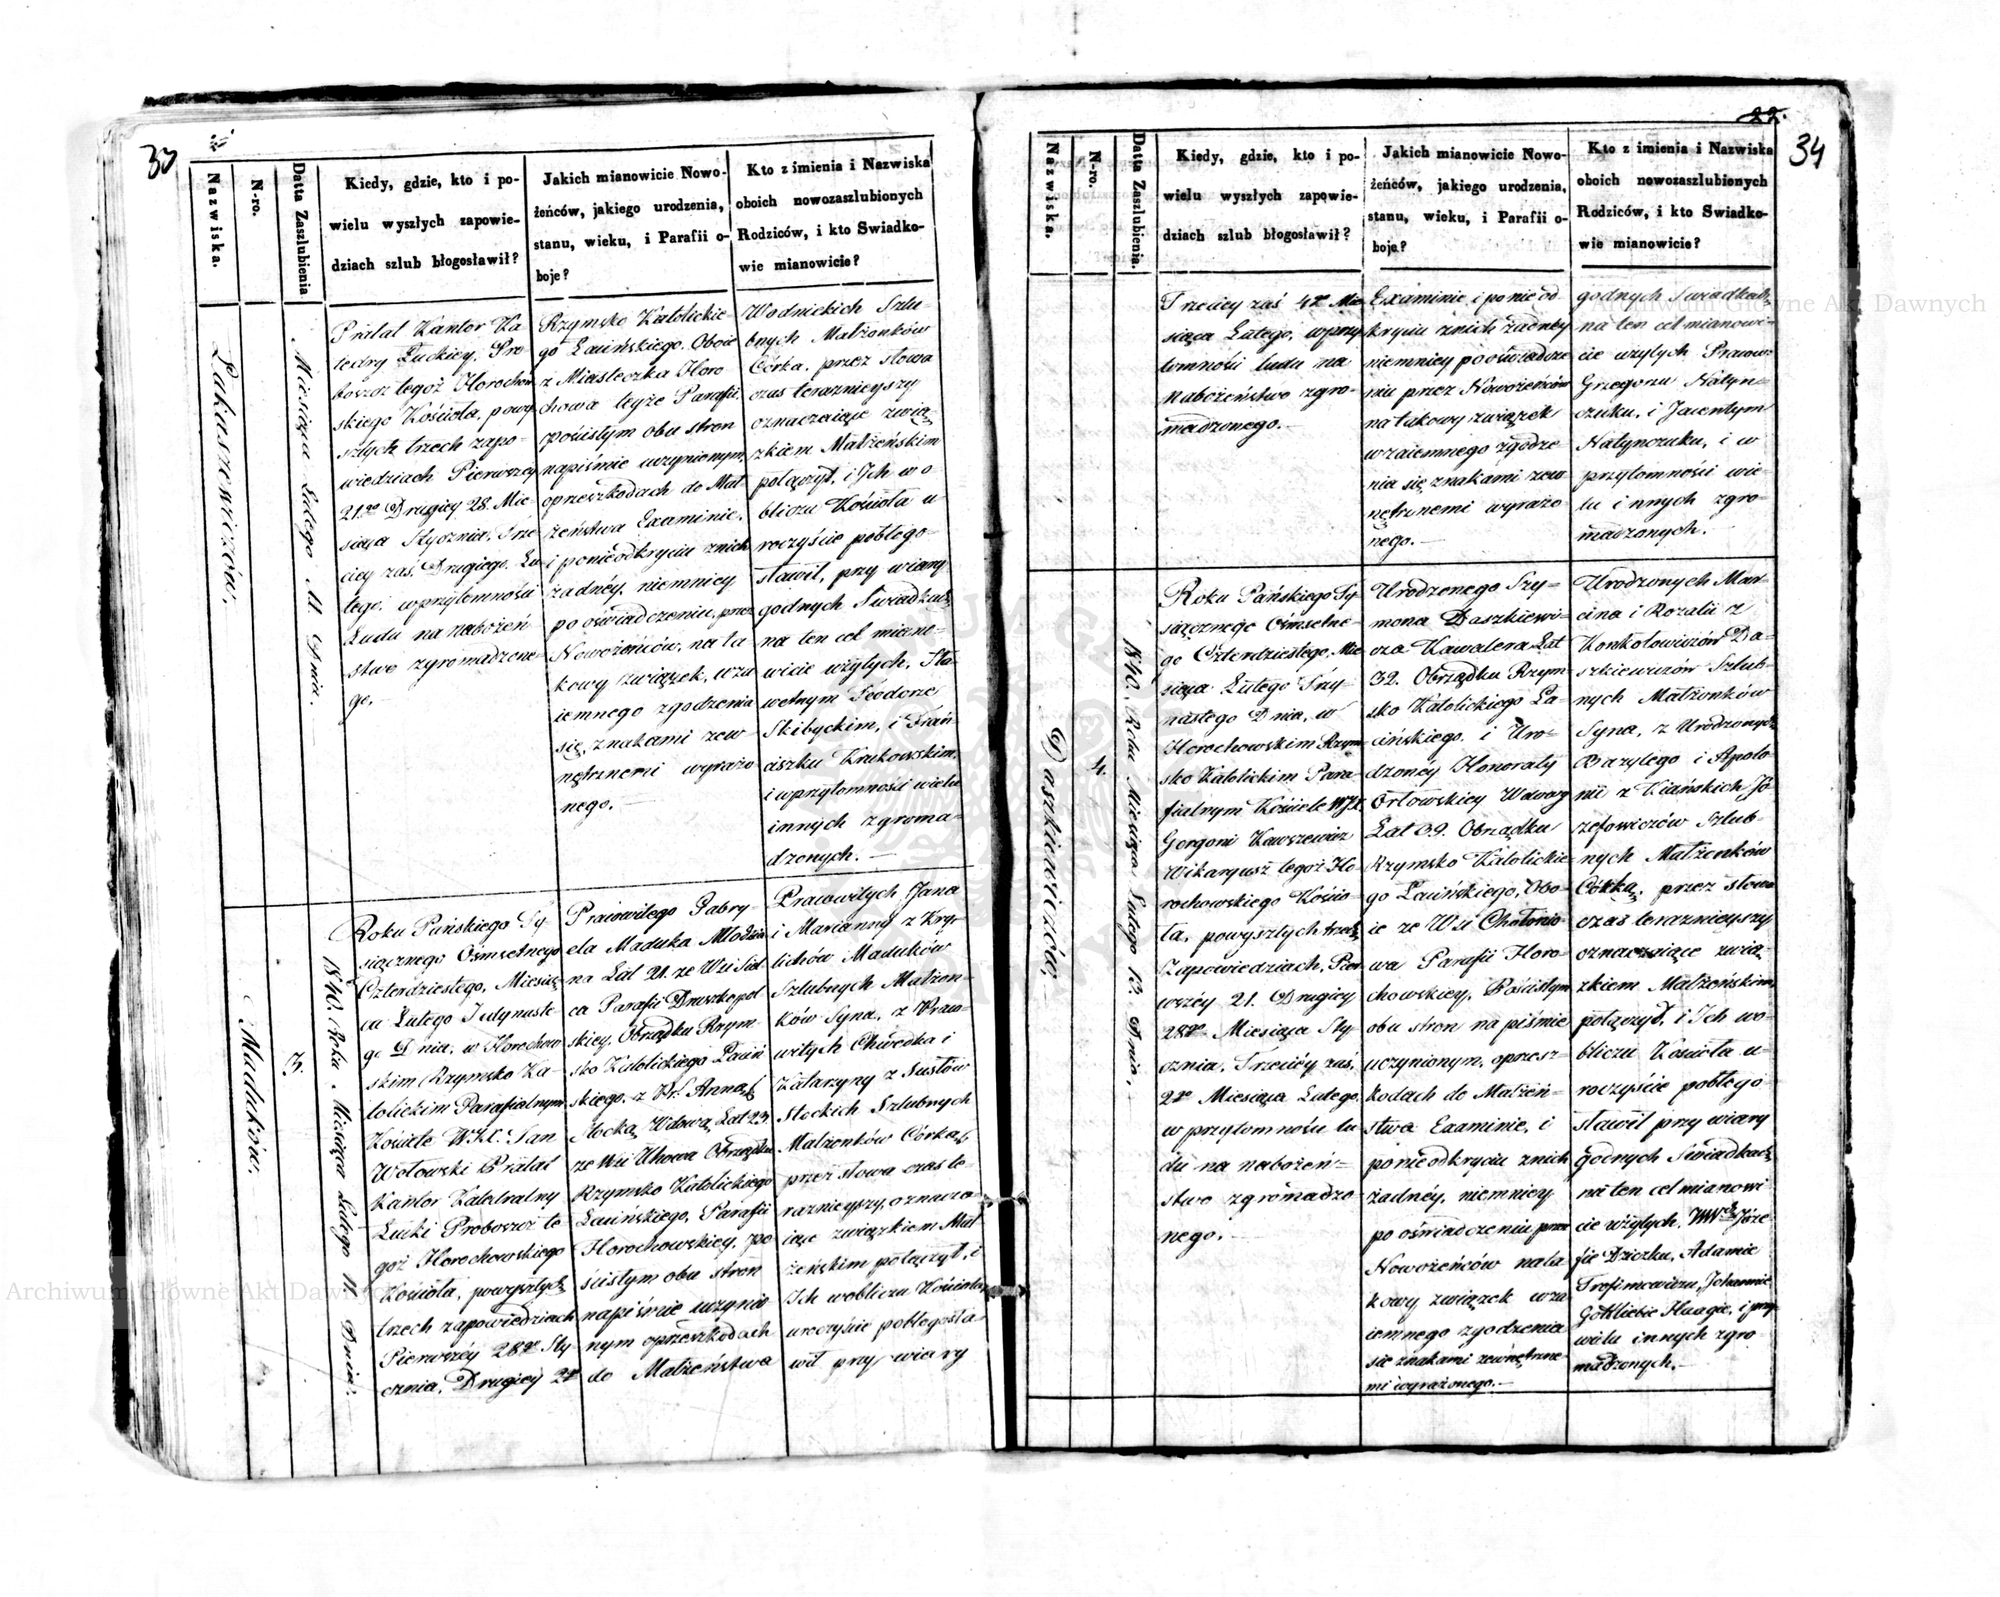 30
Nazwiska.
N-ro.
Datta Zaszlubienia
Kiedy, gdzie, kto i po-
wielu wyszłych zapowie-
dziach szlub błogosławił?
Jakich mianowicie Nowo-
żeńców, jakiego urodzenia,
stanu, wieku, i Parafii o-
boje?
Kto z imienia i Nazwiska
oboich nowozaszlubionych
Rodziców, i kto Swiadko-
wie mianowicie?
Łukaszewiczów.
Miesiąca Lutego 11 Dnia.
Prałat Kantor Ka
tedry Łuckiey, Pro
boszcz tegoż Horochow
skiego Kościoła, powy
szłych trzech zapo-
wiedziach Pierwszey
21go Drugiey 28. Mie
siąca Stycznia, Trze
ciey zaś Drugiego Lu
tego, wprzytomności
Ludu na nabożeń
stwo zgromadzone
go.
Rzymsko Katolickie
go Łacińskiego. Oboie
z Miasteczka Horo
chowa teyże Parafii,
pościsłym obu stron
napiśmie uczynionym,
oprzeszkodach do Mał
żeństwa Examinie,
i ponieodkryciu znich
żadnéy, niemniey
po oświadczeniu, przez
Nowożeńców, na ta
kowy związek, wza
iemnego zgodzenia
się, znakami zew
nętrznemi wyrażo
nego.
Wodnickich Szlu-
bnych Małżonków
Córka, przez słowa
czas teraznieyszy
oznaczaiące zwią
zkiem Małżeńskim
połączył, i Ich wo
bliczu Kościoła u
roczyście pobłogo-
sławił, przy wiary
godnych Świadkach
na ten cel miano-
wicie wziętych, Sła
wetnym Teodorze
Skibyckim, i Fran
ciszku Krukowskim,
i wprzytomności wielu
innych zgroma-
dzonych.
Maduków.
3.
1840. Roku Miesiąca Lutego 11 Dnia.
Roku Pańskiego Ty
siącznego Ośmsetnego
Czterdziestego, Miesią
ca Lutego Jedynaste
go Dnia, w Horochow
skim Rzymsko Ka-
tolickim Parafialnym
Kościele WJX. Jan
Wotowski Prałat
Kantor Katedralny
Łucki Proboszcz te
goż Horochowskiego
Kościoła, powyszłych
trzech zapowiedziach
Pierwszéy 28go Sty
cznia, Drugiey 2go
Prawowitego Gabry-
ela Maduka Młodzia
na Lat 21. ze Wsi Siel
ca Parafii Drużkopol
skiey, Obrządku Rzym-
sko Katolickiego Łaciń
skiego, z Pr. Anną
Słocką Wdową Lat 23
ze Wsi Uhowa Obrządku
Rzymsko Katolickiego
Łacińskiego, Parafii
Horochowskiey, po
ścisłym obu stron
napiśmie uczynio
nym oprzeszkodach
do Małżeństwa
Prawowitych Jana
i Marianny z Kryr
lichów Maduków
Szlubnych Małżon-
ków Syna, z Prawo-
witych Chwedka i
Katarzyny z Sustów
Słockich Szlubnych
Małżonków Córką,
przez słowa czas te-
raznieyszy, oznacza-
iące związkiem Mał
żeńskim połączył, i
Ich wobliczu Kościoła
uroczyście pobłogosła
wił przy wiary
22.
34
Nazwiska.
N-ro.
Datta Zaszlubienia.
Kiedy, gdzie, kto i po-
wielu wyszłych zapowie-
dziach szlub błogosławił?
Jakich mianowicie Nowo-
żeńców, jakiego urodzenia,
stanu, wieku, i Parafii o-
boje?
Kto z imienia i Nazwiska
oboich nowozaszlubionych
Rodziców, i kto Swiadko-
wie mianowicie?
Trzeciey zaś 4go Mie
siąca Lutego, wprzy
tomności ludu na
nabożeństwo zgro-
madzonego.
Examinie, i ponieod-
kryciu znich żadnéy
niemniey pooświadcze
niu przez Nowożeńców
na takowy związek
wzaiemnego zgodze
nia się, znakami zew
nętrznemi wyrażo
nego.
godnych Świadkach
na ten cel mianowi-
cie wziętych Prawow:
Grzegorzu Hatyn-
czuku, i Jacentym
Hatynczuku, i w
przytomności wie-
lu innych zgro-
madzonych.
Daszkiewiczów.
4.
1840. Roku Miesiąca Lutego 13. Dnia.
Roku Pańskiego Ty
siącznego Ośmsetne-
go Czterdziestego, Mie
siąca Lutego Trzy-
nastego Dnia, w
Horochowskim Rzym-
sko Katolickim Para
fialnym Kościele WJX.
Gorgoni Kawszewicz
Wikaryusz tegoż Ho
rochowskiego Kościo
ła, powyszłych trzech
Zapowiedziach, Pier
wszéy 21. Drugiey
28go Miesiąca Sty
cznia, Trzeciéy zaś,
2go Miesiąca Lutego,
w przytomności lu
du na nabożeń-
stwo zgromadzo
nego.
Urodzonego Szy-
mona Daszkiewi-
cza Kawalera Lat
32. Obrządku Rzym-
sko Katolickiego Ła-
cińskiego, i Uro-
dzonéy Honoraty
Orłowskiey Wdowy
Lat 39. Obrządku
Rzymsko Katolickie
go Łacińskiego, Obo-
ie ze Wsi Chołonio
wa Parafii Horo-
chowskiey, Pościsłym
obu stron na piśmie
uczynionym, oprzesz-
kodach do Małżeń-
stwa Examinie, i
ponieodkryciu znich
żadnéy, niemniey
po oświadczeniu przez
Nowożeńców na ta
kowy związek wza
iemnego zgodzenia
się znakami zewnętrzne-
mi wyrażonego.
Urodzonych Mar-
cina i Rozalii z
Konkołowiczów Da-
szkiewiczów Szlub-
nych Małżonków
Syna, z Urodzonych
Bazylego i Apolo
nii z Kiańskich Jó
zefowiczów Szlub-
nych Małżonków
Córką, przez słowa
czas teraznieyszy
oznaczaiące zwią-
zkiem Małżeńskim
połączył, i Ich wo-
bliczu Kościoła u-
roczyście pobłogo
sławił przy wiary
godnych Świadkach
na ten cel mianowi
cie wziętych, WWch Józe-
fie Dziczku, Adamie
Trofimowiczu, Johannie
Gottliebie Haagie, i przy
wielu innych zgro
madzonych.
Archiwum Główne Akt Dawnych
Archiwum Główne Akt Dawnych